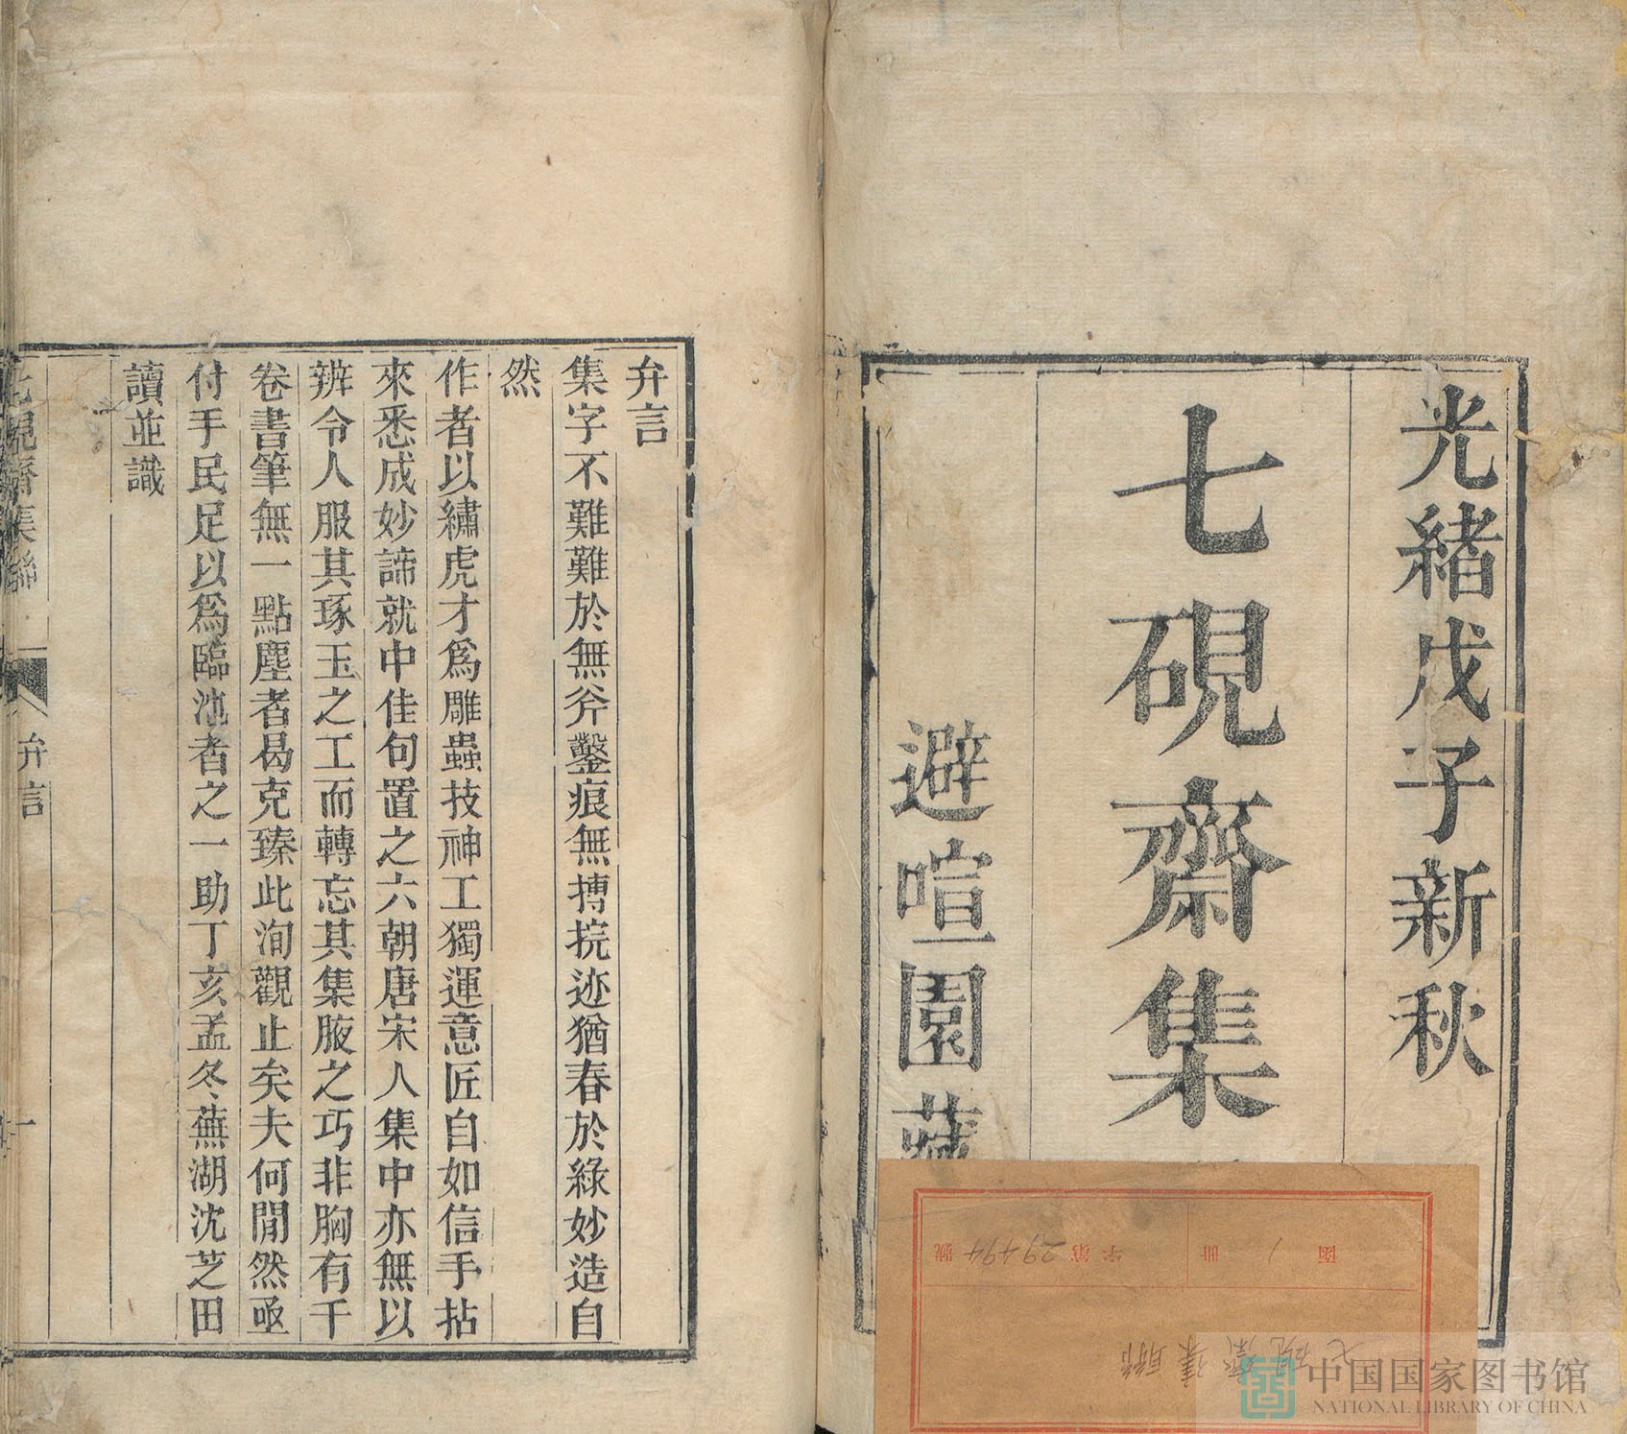 光緒戊子新秋
七硯齋集
避喧園藏
函 1 冊
字第29494號
七硯齋集聯
中国国家图书馆
NATIONAL LIBRARY OF CHINA
弁言
集字不難難於無斧鑿痕無摶捖迹猶春於綠妙造自
然
作者以繡虎才爲雕蟲技神工獨運意匠自如信手拈
來悉成妙諦就中佳句置之六朝唐宋人集中亦無以
辨令人服其琢玉之工而轉忘其集腋之巧非胸有千
卷書筆無一點塵者曷克臻此洵觀止矣夫何閒然亟
付手民足以爲臨池者之一助丁亥孟冬蕪湖沈芝田
讀並識
七硯齋集聯 弁言 一